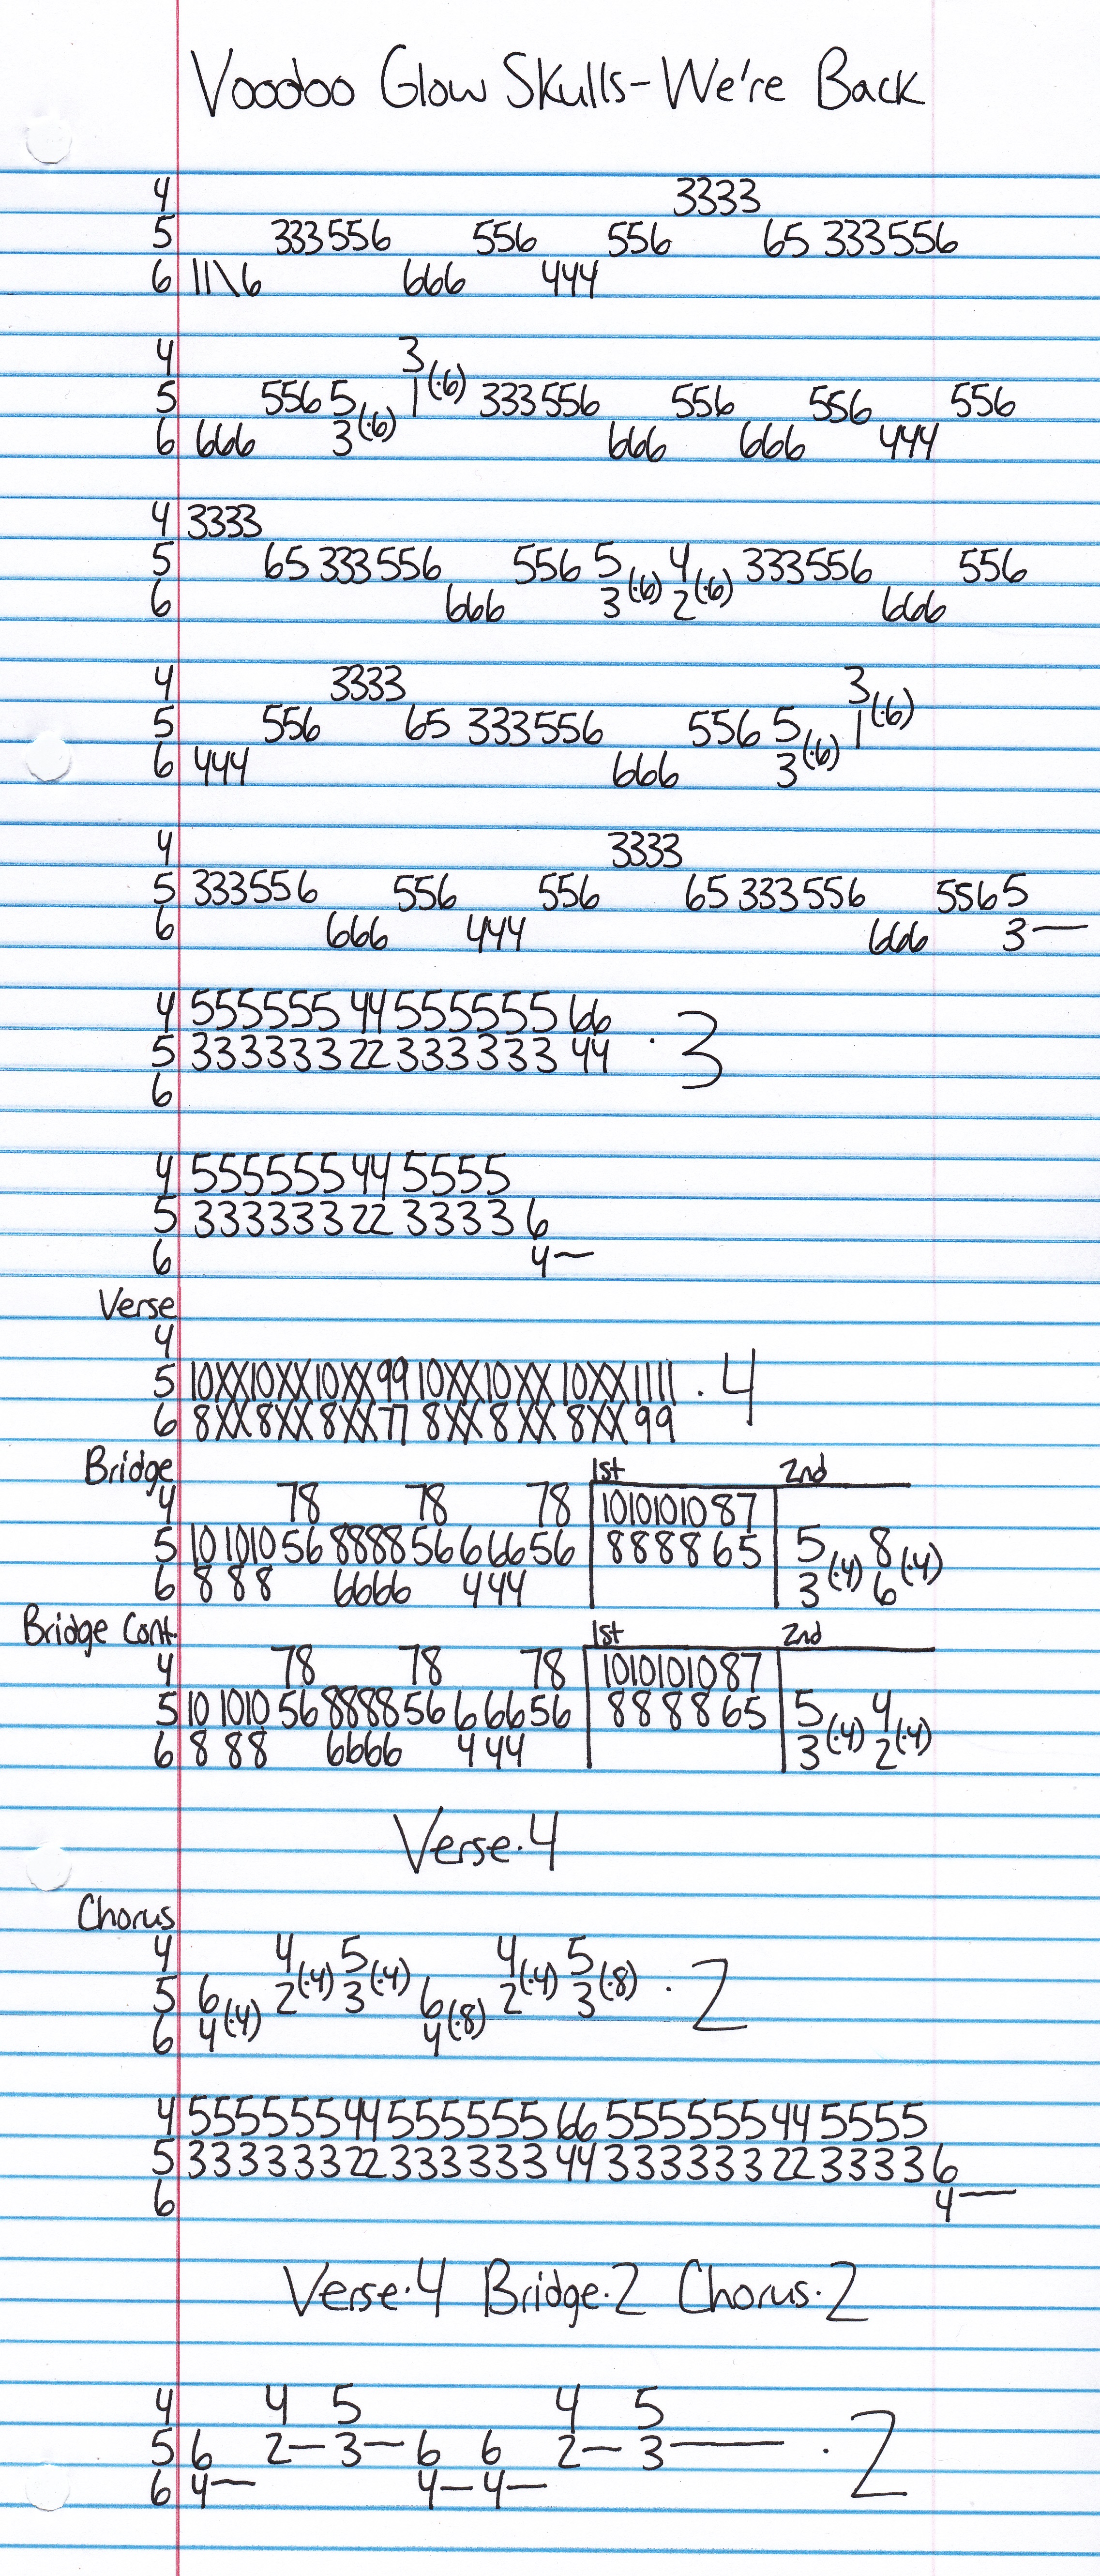 Voodoo Glow Skulls-We're Back
4 3333
5 333556 556 556 65 333556
6 11\6 666 444
4 3
5 556 5 1(·6) 333556 556 556 556
6 666 3(·6) 666 666 444
4 3333
5 65 333556 556 5 4 333556 556
6 666 3(·6) 2(·6) 666
4 3333 3
5 556 65 333556 556 5 1(·6)
6 444 666 3(·6)
4 3333
5 333556 556 556 65 333556 5565
6 666 444 666 3—
4 555555 44 555555 66
5 333333 22 333333 44 ·3
6
4 555555 44 5555
5 333333 22 3333 6
6 4—
Verse
4
5 10XX10XX10XX99 10XX10XX 10XX1111 ·4
6 8XX8XX 8XX77 8XX 8XX 8XX 99
Bridge 1st 2nd
4 78 78 78 10101010 87
5 10 1010 56 8888 56 6 66 56 8888 65 5 8
6 8 88 6666 444 3(·4) 6(·4)
Bridge Cont. 1st 2nd
4 78 78 78 10101010 87
5 10 1010 56 8888 56 6 66 56 8888 65 5 4
6 8 88 6666 444 3(·4) 2(·4)
Verse·4
Chorus
4 4 5 4 5
5 6 2(·4) 3(·4) 6 2(·4) 3(·8) ·2
6 4(·4) 4(·8)
4 555555 44 555555 66 555555 44 5555
5 333333 22 333333 44 333333 22 3333 6
6 4—
Verse·4 Bridge·2 Chorus·2
4 4 5 4 5
5 6 2— 3— 6 6 2— 3— ·2
6 4— 4— 4—